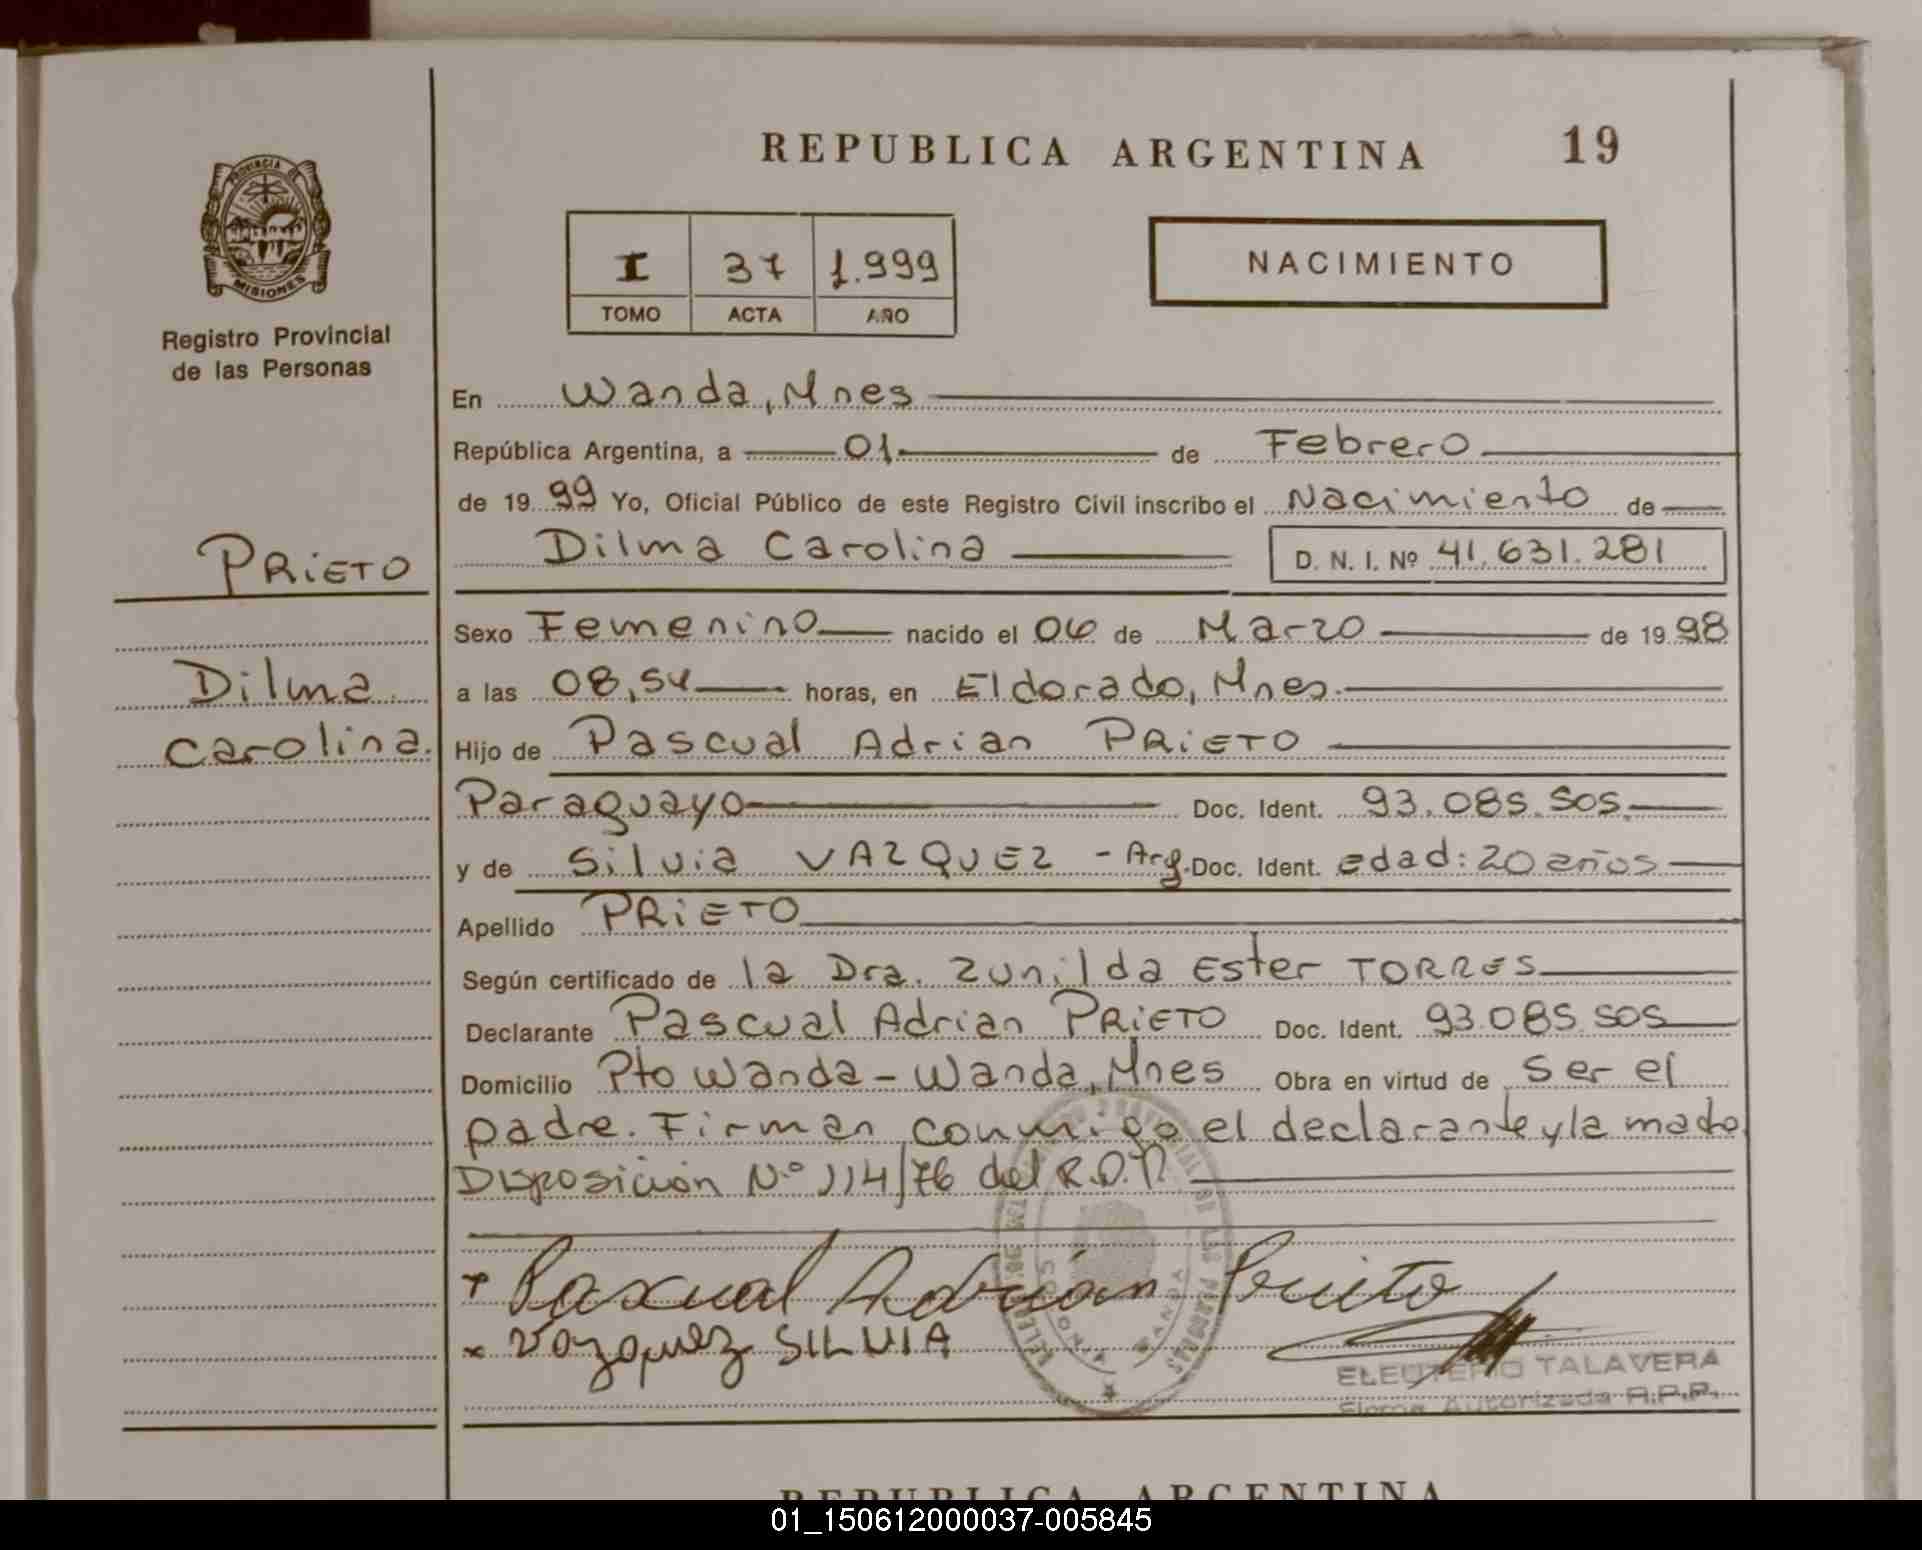 REPUBLICA ARGENTINA 19
PROVINCIA DE MISIONES
Registro Provincial
de las Personas
I 37 1.999
TOMO ACTA AÑO
NACIMIENTO
En Wanda, Mnes
República Argentina, a 01 de Febrero
de 19 99 Yo, Oficial Público de este Registro Civil inscribo el Nacimiento de
PRIETO
Dilma Carolina D. N. I. Nº 41.631.281
Sexo Femenino nacido el 06 de Marzo de 19 98
Dilma
a las 08,54 horas, en Eldorado, Mnes.
Carolina.
Hijo de Pascual Adrian PRIETO
Paraguayo Doc. Ident. 93.085.505.
y de Silvia VAZQUEZ - Arg. Doc. Ident. edad: 20 años
Apellido PRIETO
Según certificado de la Dra. Zunilda Ester TORRES
Declarante Pascual Adrian PRIETO Doc. Ident. 93.085.505
Domicilio Pto Wanda - Wanda, Mnes Obra en virtud de ser el
padre. Firman conmigo el declarante y la madre.
Disposición Nº 114/76 del R.P.P.
Pascual Adrián Prieto
x Vazquez SILVIA
ELEUTERIO TALAVERA
Firma Autorizada R.P.P.
REPUBLICA ARGENTINA
01_150612000037-005845